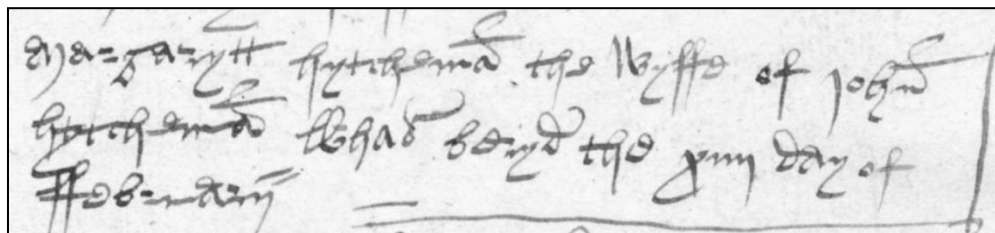 Margarytt hytchemā the Wyffe of john̄
hytchemā Whas beryd the xiiii day of
ffebruarii